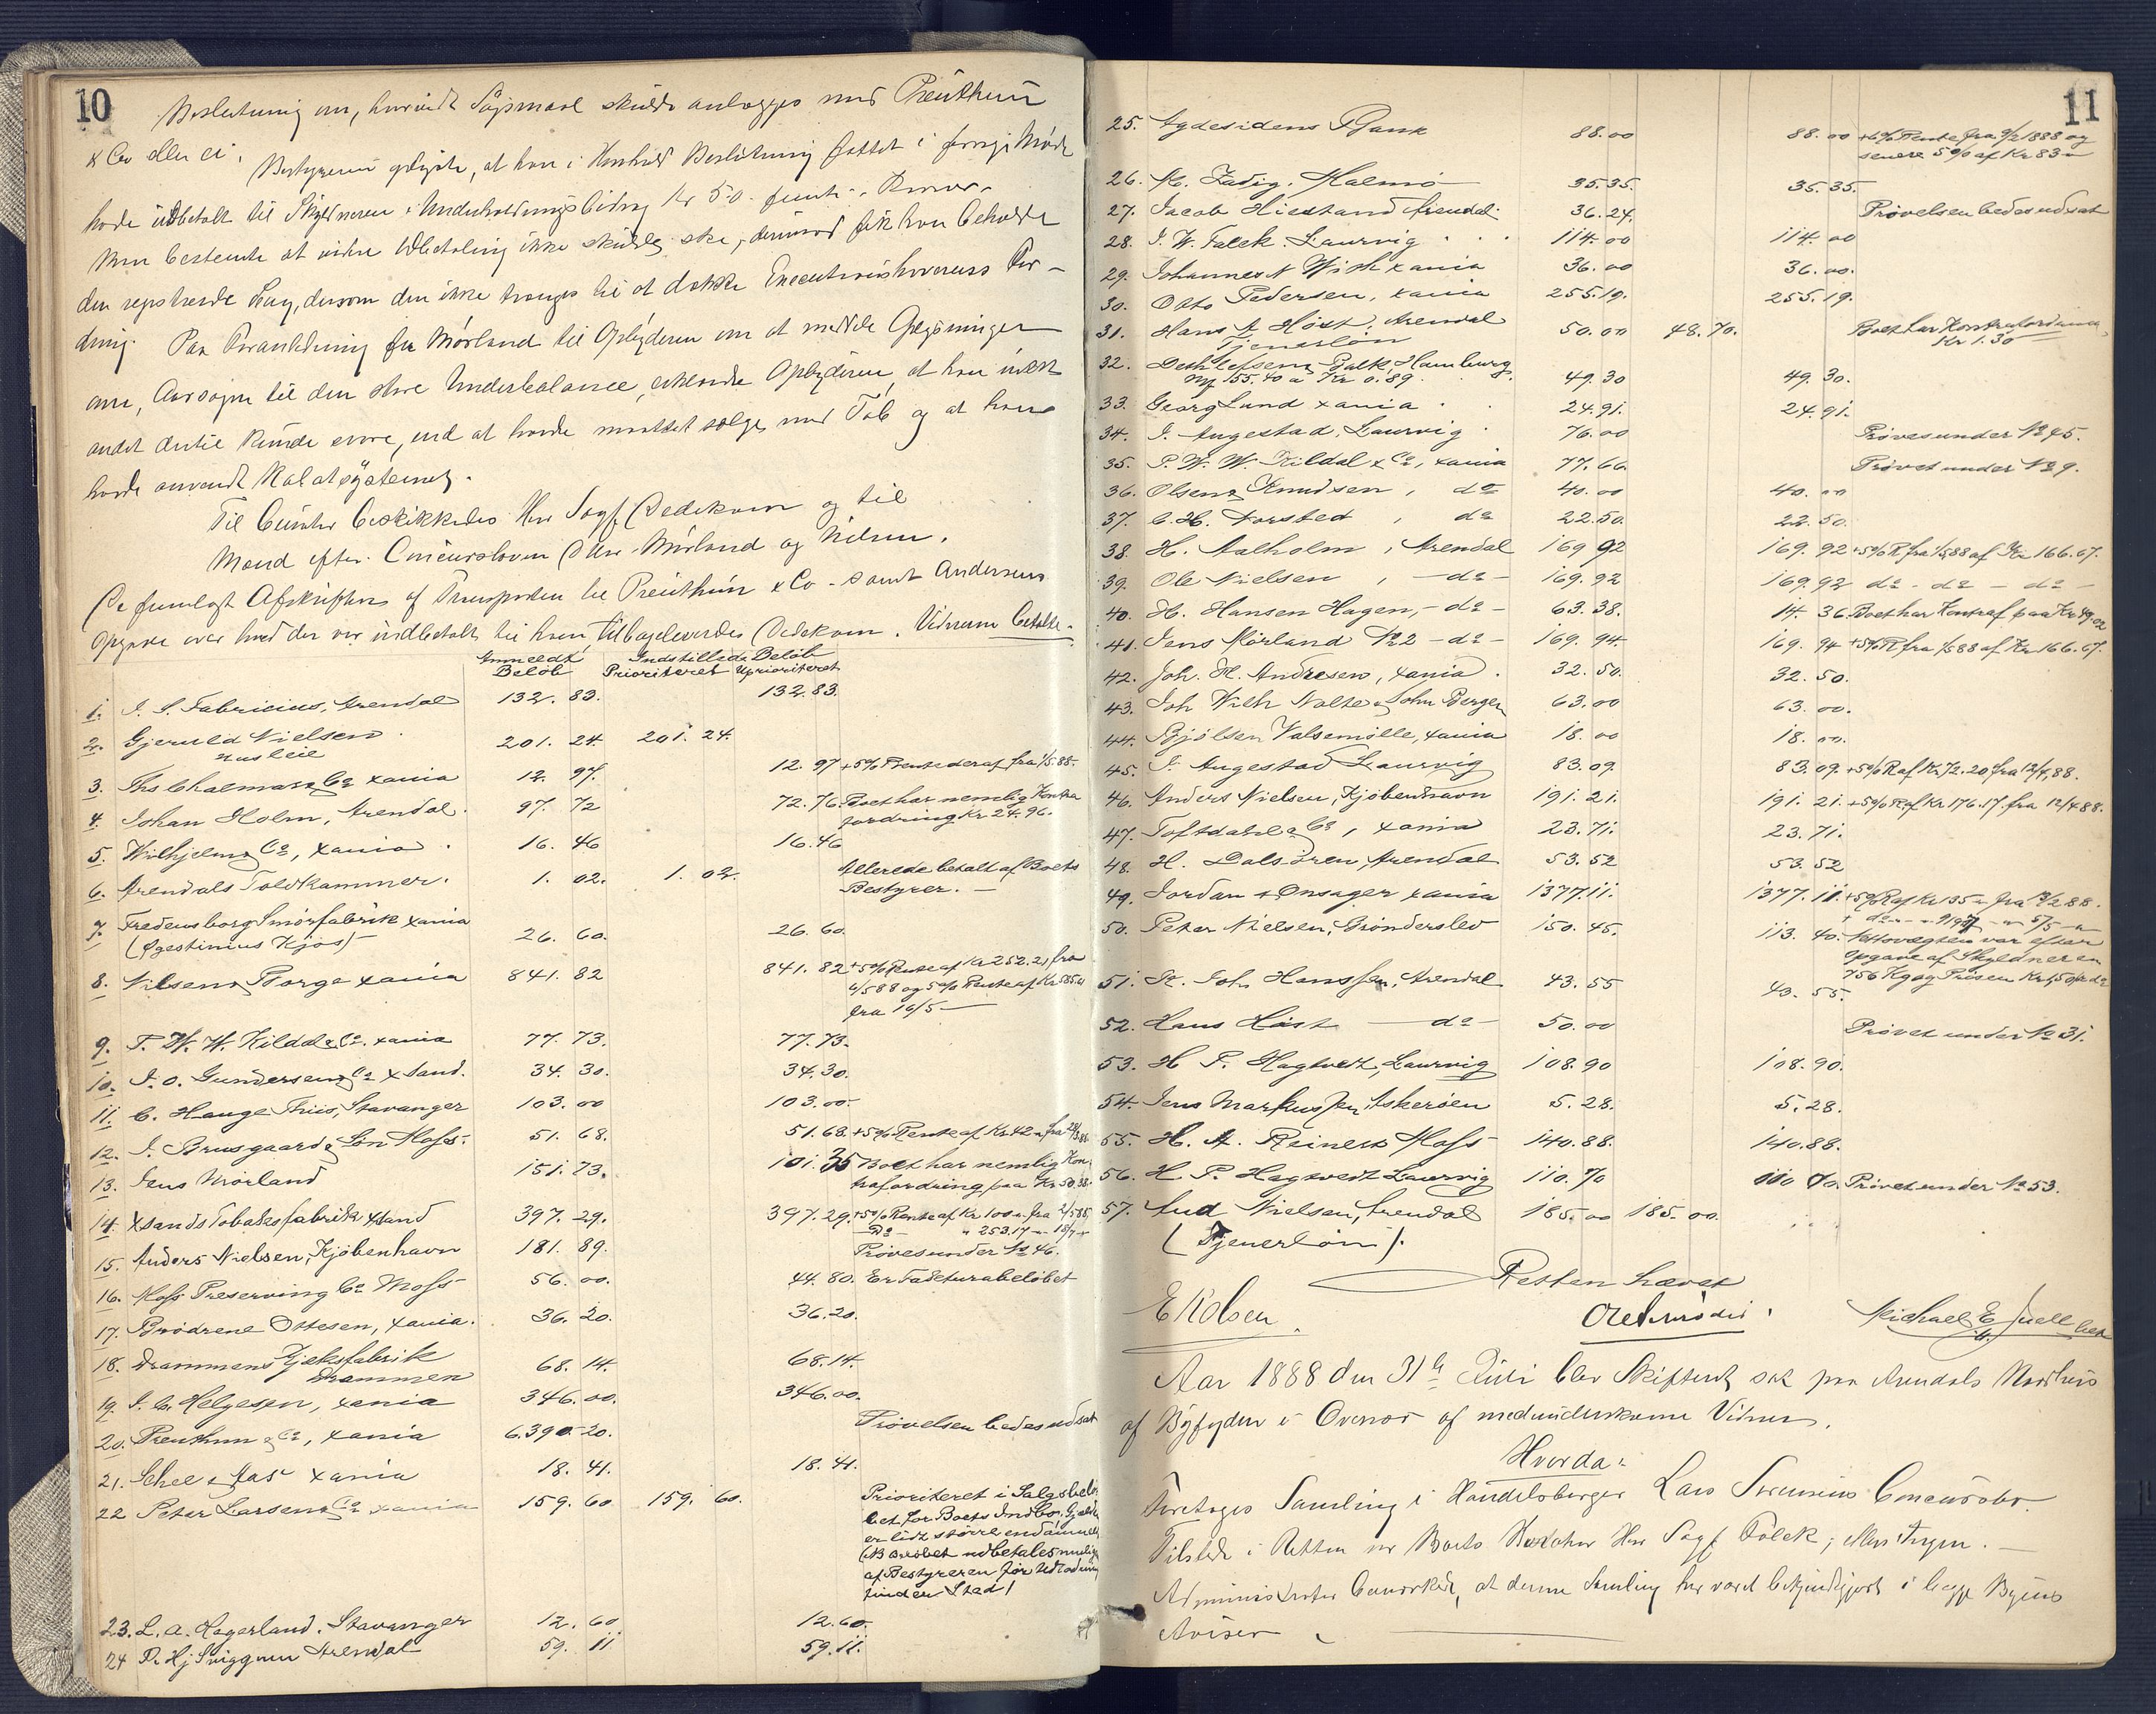 10
Beslutning om, hvorvidt Søgsmaal skulde anlægges mod Preuthun
& Co eller ei.
Bestyreren oplyste, at han i Henhold Beslutning fattet i forrige Møde
havde udbetalt til Skyldneren i Underholdningsbidrag Kr 50 - femti - Kroner.
Man bestemte at videre Udbetaling ikke skulde ske, derimod fik han beholde
den registrerede Seng, dersom den ikke trænges til at dække Executionshaverens For-
dring. Paa Foranledning fra Mørland til Opbyderen om at meddele Oplysninger
om, Aarsagen til den store Underbalance, erklærede Opbyderen, at han intet
andet dertil kunde svare, end at havde maattet sælge med Tab og at have
havde anvendt Rabatsystemet.
Til Curator beskikkedes Herr Sagf. Dedekam og til
Mænd efter Concursloven D'Hrr. Mørland og Nielsen.
De fremlagte Afskrifter af Transporten til Preuthun & Co - samt Andersens
Opgave over hvad der var indbetalt til ham, tilbageleveredes Dedekam. Vidnerne betalte.
Anmeldt Indstillede Beløb
Beløb Prioriteret Uprioriteret
1. J. S. Fabricius, Arendal 132. 83. 132. 83.
2. Gjeruld Nielsen 201. 24. 201. 24.
Husleie
3. Ths Chalmars & Co xania 12. 97. 12. 97 +5% Rente deraf fra 1/5 88.
4. Johan Holm, Arendal. 97. 72 72. 76. Boet har nemlig Kontra
fordring Kr 24. 96.
5. Wilhjelm & Co, xania 16. 46 16. 46
6. Arendals Toldkammer. 1. 02. 1. 02. Allerede betalt af Boets
Bestyrer. —
7. Fredensborg Smørfabrik xania
(Ægestinius Kjos) 26. 60. 26. 60.
8. Nilsen & Borge xania 841. 82 841. 82 +5% Rente af Kr 252. 21 fra
4/5 88 og 5% Rente af Kr 585.61
fra 16/5 —
9. P. W. W. Kildal & Co. xania 77. 73. 77. 73.
10. J. O. Gundersen & Co xsand. 34. 30. 34. 30.
11. C. Hauge Thiis, Stavanger 103. 00 103. 00.
12. J. Brusgaard & Søn Moss. 51. 68. 51. 68. +5% Rente af Kr 42 " fra 28/3 88
13. Jens Mørland 151. 73. 101. 35 Boet har nemlig Kon-
trafordring paa Kr 50.38.
14. Xsands Tobaksfabrik xsand 397. 29. 397. 29. +5% Rente af Kr 100 " fra 2/5 88
Do — " 253.17 — " 18/7 "
15. Anders Nielsen, Kjøbenhavn 181. 89. Prøves under No 46.
16. Moss Preserving Co Moss 56. 00. 44. 80. Er Fakturabeløbet
17. Brødrene Ottesen, xania. 36. 20. 36. 20.
18. Drammens Kjeksfabrik
Drammen 68. 14. 68. 14.
19. J. C. Helgesen, xania 346. 00. 346. 00.
20. Preuthun & Co, xania 6.390. 20. Prøvelsen bedes udsat
21. Schee & Aas xania 18. 41. 18. 41.
22 Peter Larsen & Co xania 159. 60 159. 60. Prioriteret i Salgsbelø-
bet for Boets Indbo. Gjælden
er lidt større end anmeldt
(NB Beløbet udbetales muligens
af Bestyreren før Udlodning
finder Sted)
23. L. A. Hagerland. Stavanger 12. 60 12. 60.
24 P. Hj Sniggum Arendal 59. 11 59. 11.
11
25. Agdesidens Bank 88. 00 88. 00 +6% Rente fra 9/2 1888 og
senere 5% af Kr 83 "
26. M. Zadig. Malmö 35. 35. 35. 35.
27. Jacob Hiestand Arendal. 36. 24. Prøvelsen bedes udsat
28. J. W. Falck. Laurvig 114. 00 114. 00
29. Johannes N Wisth xania 36. 00 36. 00.
30. Otto Pedersen, xania 255. 19. 255. 19.
31. Hans A Höst, Arendal 50. 00 48. 70. Boet har Kontrafordring
Tjenerløn Kr 1.30
32. Dethlefsen & Balk, Hamburg
Mk 155. 40 a Kr 0. 89. 49. 30 49. 30.
33. Georg Lund xania 24. 91. 24. 91.
34. J. Augestad, Laurvig 76. 00 Prøves under No 45.
35. P. W. W. Kildal & Co, xania 77. 66 Prøvet under No 9.
36. Olsen & Knudsen, do 40. 00 40. 00
37. C. H. Torsted, do 22. 50. 22. 50.
38. H. Aalholm, Arendal 169 92 169. 92 +5% R. fra 1/5 88 af Kr 166. 67.
39. Ole Nielsen, — do — 169. 92 169. 92 do - do - do -
40. H. Hansen Hagen, - do - 63. 38. 14. 36. Boet har Kontraf paa Kr 49. 02
41. Jens Mørland No 2 - do - 169. 94. 169. 94 +5% R fra 1/5 88 af Kr 166. 67.
42. Joh. H. Andresen, xania 32. 50. 32. 50.
43. Joh Wilh Nolte & Sohn Bergen 63. 00 63. 00.
44. Bjølsen Valsemølle, xania 18. 00 18. 00.
45. J. Augestad Laurvig 83. 09. 83. 09. +5% R af Kr 72. 20 fra 12/4 88.
46. Anders Nielsen, Kjøbenhavn 191. 21. 191. 21. +5% R af Kr 176. 17 fra 12/4 88.
47. Toftdahl & Co, xania 23. 71. 23. 71.
48. H. Dalsören, Arendal 53. 52 53. 52
49. Jordan & Onsager xania 1377. 11. 1377. 11. +5% R af Kr 135 " fra 12/2 88.
50. Peter Nielsen, Brönderslev 150. 45. 113. 40. Nettovægten var efter
Opgave af Skyldneren
756 Kg og Prisen Kr 1,50 pr do
51. St. Joh Hanssen, Arendal 43. 55 43. 55.
52. Hans Höst — do — 50. 00 Prøvet under No 31.
53. H P. Hagtvedt, Laurvig 108. 90 108. 90.
54. Jens Markussen, Askerøen 5. 28. 5. 28.
55. H. A. Reinert Moss 140. 88. 140. 88.
56. H P. Hagtvedt Laurvig 110. 70 110 70. Prøvet under No 53.
57. Aud Nielsen, Arendal 185. 00 185. 00.
(Tjenerløn).
Retten hævet
E Kolsen. Michael E Juell
Aar 1888 den 31te Juli blev Skifteret sat paa Arendals Raadhus
af Byfogden i Overvær af medunderskrevne Vidner.
Hvorda:
Foretoges Samling i Handelsborger Lars Sørensens Concursbo.
Tilstede i Retten var Boets Herr Sagf Falck; ellers Ingen. —
Administrator bemærkede, at denne Samling har været bekjendtgjort i begge Byens
Aviser.